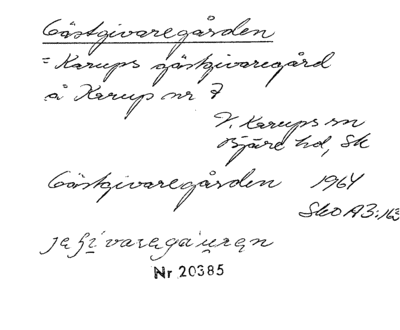 Gästgivaregården
= Karups gästgivaregård
å Karup nr 7
V. Karups sn
Bjäre hd, Sk
Gästgivaregården 1964
Sko A3:163
Nr 20385